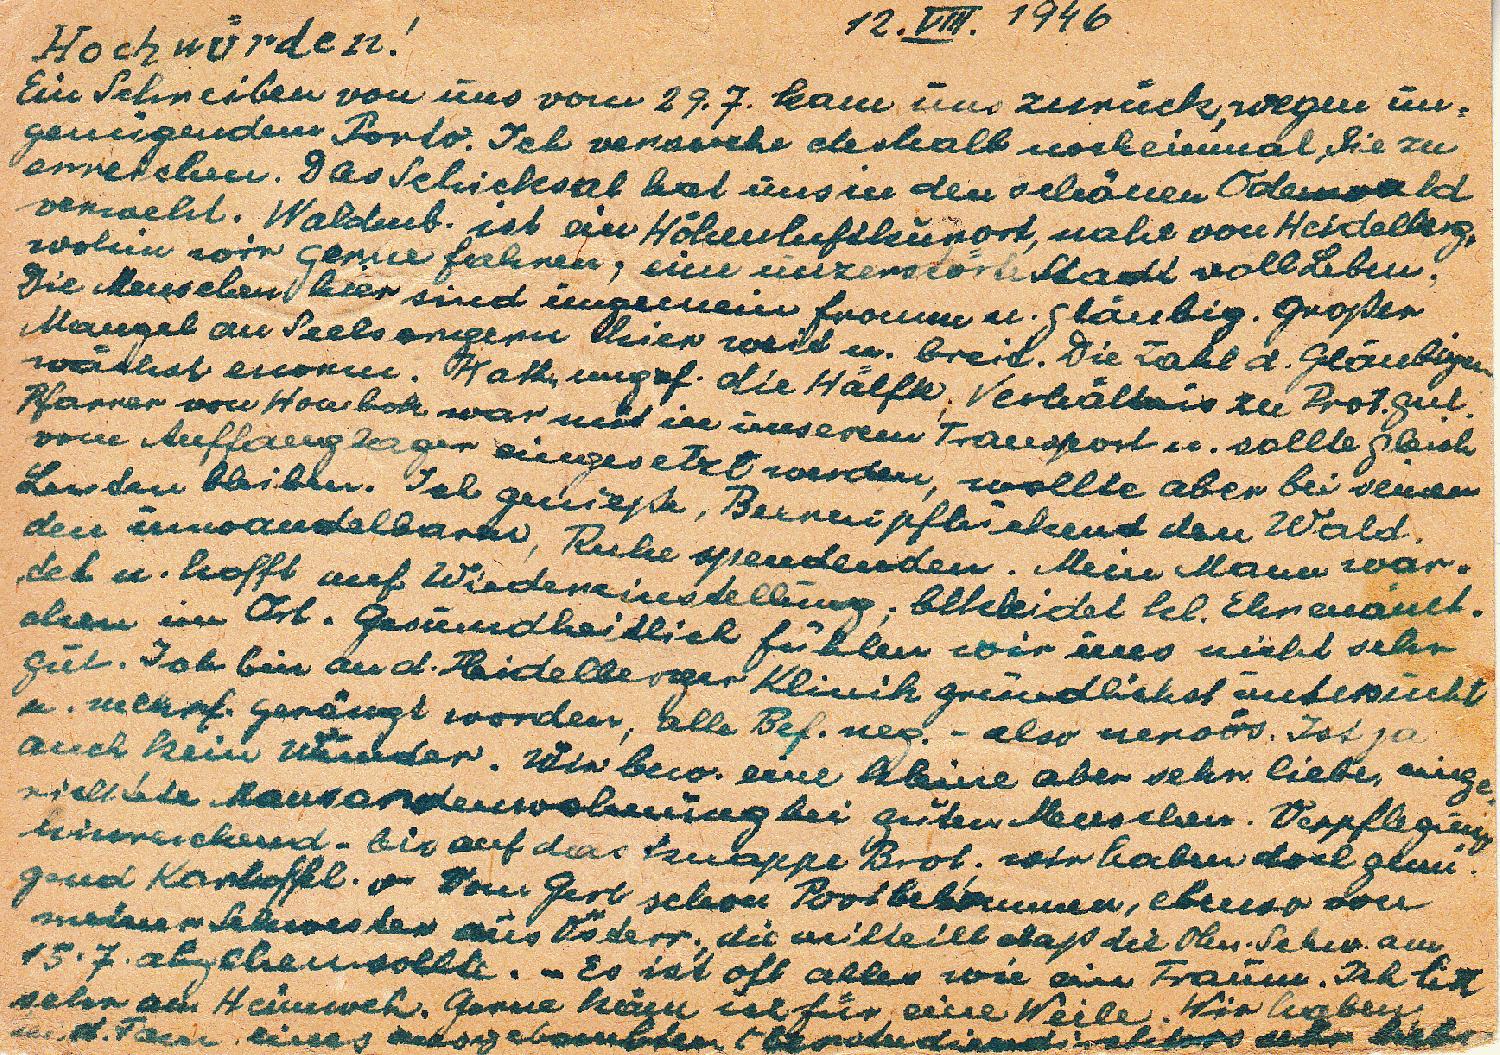 12. VIII. 1946
Hochwürden!
Ein Schreiben von uns vom 29.7. kam uns zurück, wegen un-
genügendem Porto. Ich versuche deshalb noch einmal, Sie zu
erreichen. Das Schicksal hat uns in den schönen Odenwald
verweht. Waldenb. ist ein Höhenluftkurort, nahe von Heidelberg,
wohin wir gerne fahren, eine unzerstörte Stadt voll Leben.
Die Menschen hier sind ungemein fromm u. gläubig. Großer
Mangel an Seelsorgern hier weit u. breit. Die Zahl d. Gläubigen
wächst enorm. Kath. ungef. die Hälfte, Verhältnis zu Prot. gut.
Pfarrer von Hombok war mit in unserem Transport u. sollte gleich
vom Auffanglager eingesetzt werden, wollte aber bei seinen
Leuten bleiben. Ich genieße, Beeren pflückend den Wald.
den unwandelbaren, Ruhe spendenden. Mein Mann war-
tet u. hofft auf Wiedereinstellung, bekleidet kl. Ehrenämt-
chen im Ort. Gesundheitlich fühlen wir uns nicht sehr
gut. Ich bin an d. Heidelberger Klinik gründlichst untersucht
u. mehrf. geröngt worden, alle Bef. neg. - also nervös. Ist ja
auch kein Wunder. Wir bew. eine kleine aber sehr liebe, einge-
richtete Mansardenwohnung bei guten Menschen. Verpflegung
hinreichend - bis auf das knappe Brot, wir haben doch genü-
gend Kartoffel. Von Gert schon Post bekommen, ebenso von
meiner Schwester aus Österr., die mitteilt daß die Schw. am
15.7. abgehen sollte. - Es ist oft alles wie ein Traum. Ich leide
sehr an Heimweh. Gerne käm ich für eine Weile. Wir haben
in d. Fam. eines ausgebombten Oberstudiendirektors sehr liebe